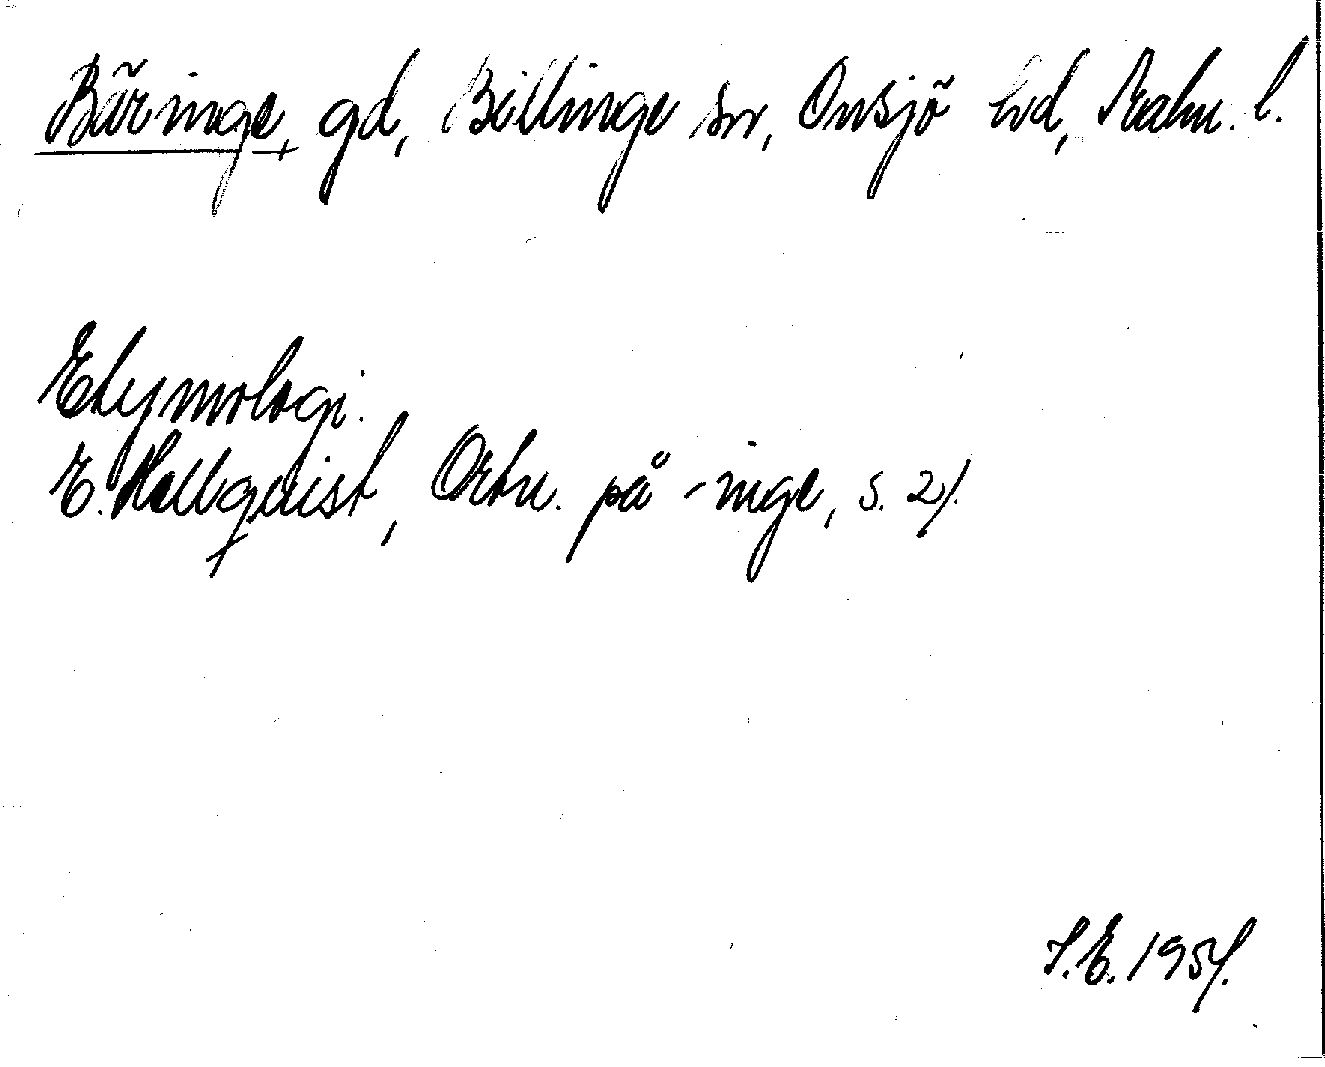 Böringe, gd, Billinge sn, Onsjö hd, Malm. l.
Etymologi.
E. Hellquist, Ortn. på -inge, s. 21.